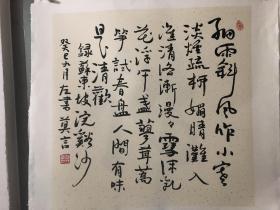 細雨斜風作小寒
淡煙疏柳媚晴灘入
淮清洛漸漫々雪沫乳
花浮午盞蓼茸蒿
笋試春盤人間有味
是清歡
録蘇東坡浣谿沙
癸巳月左書莫言